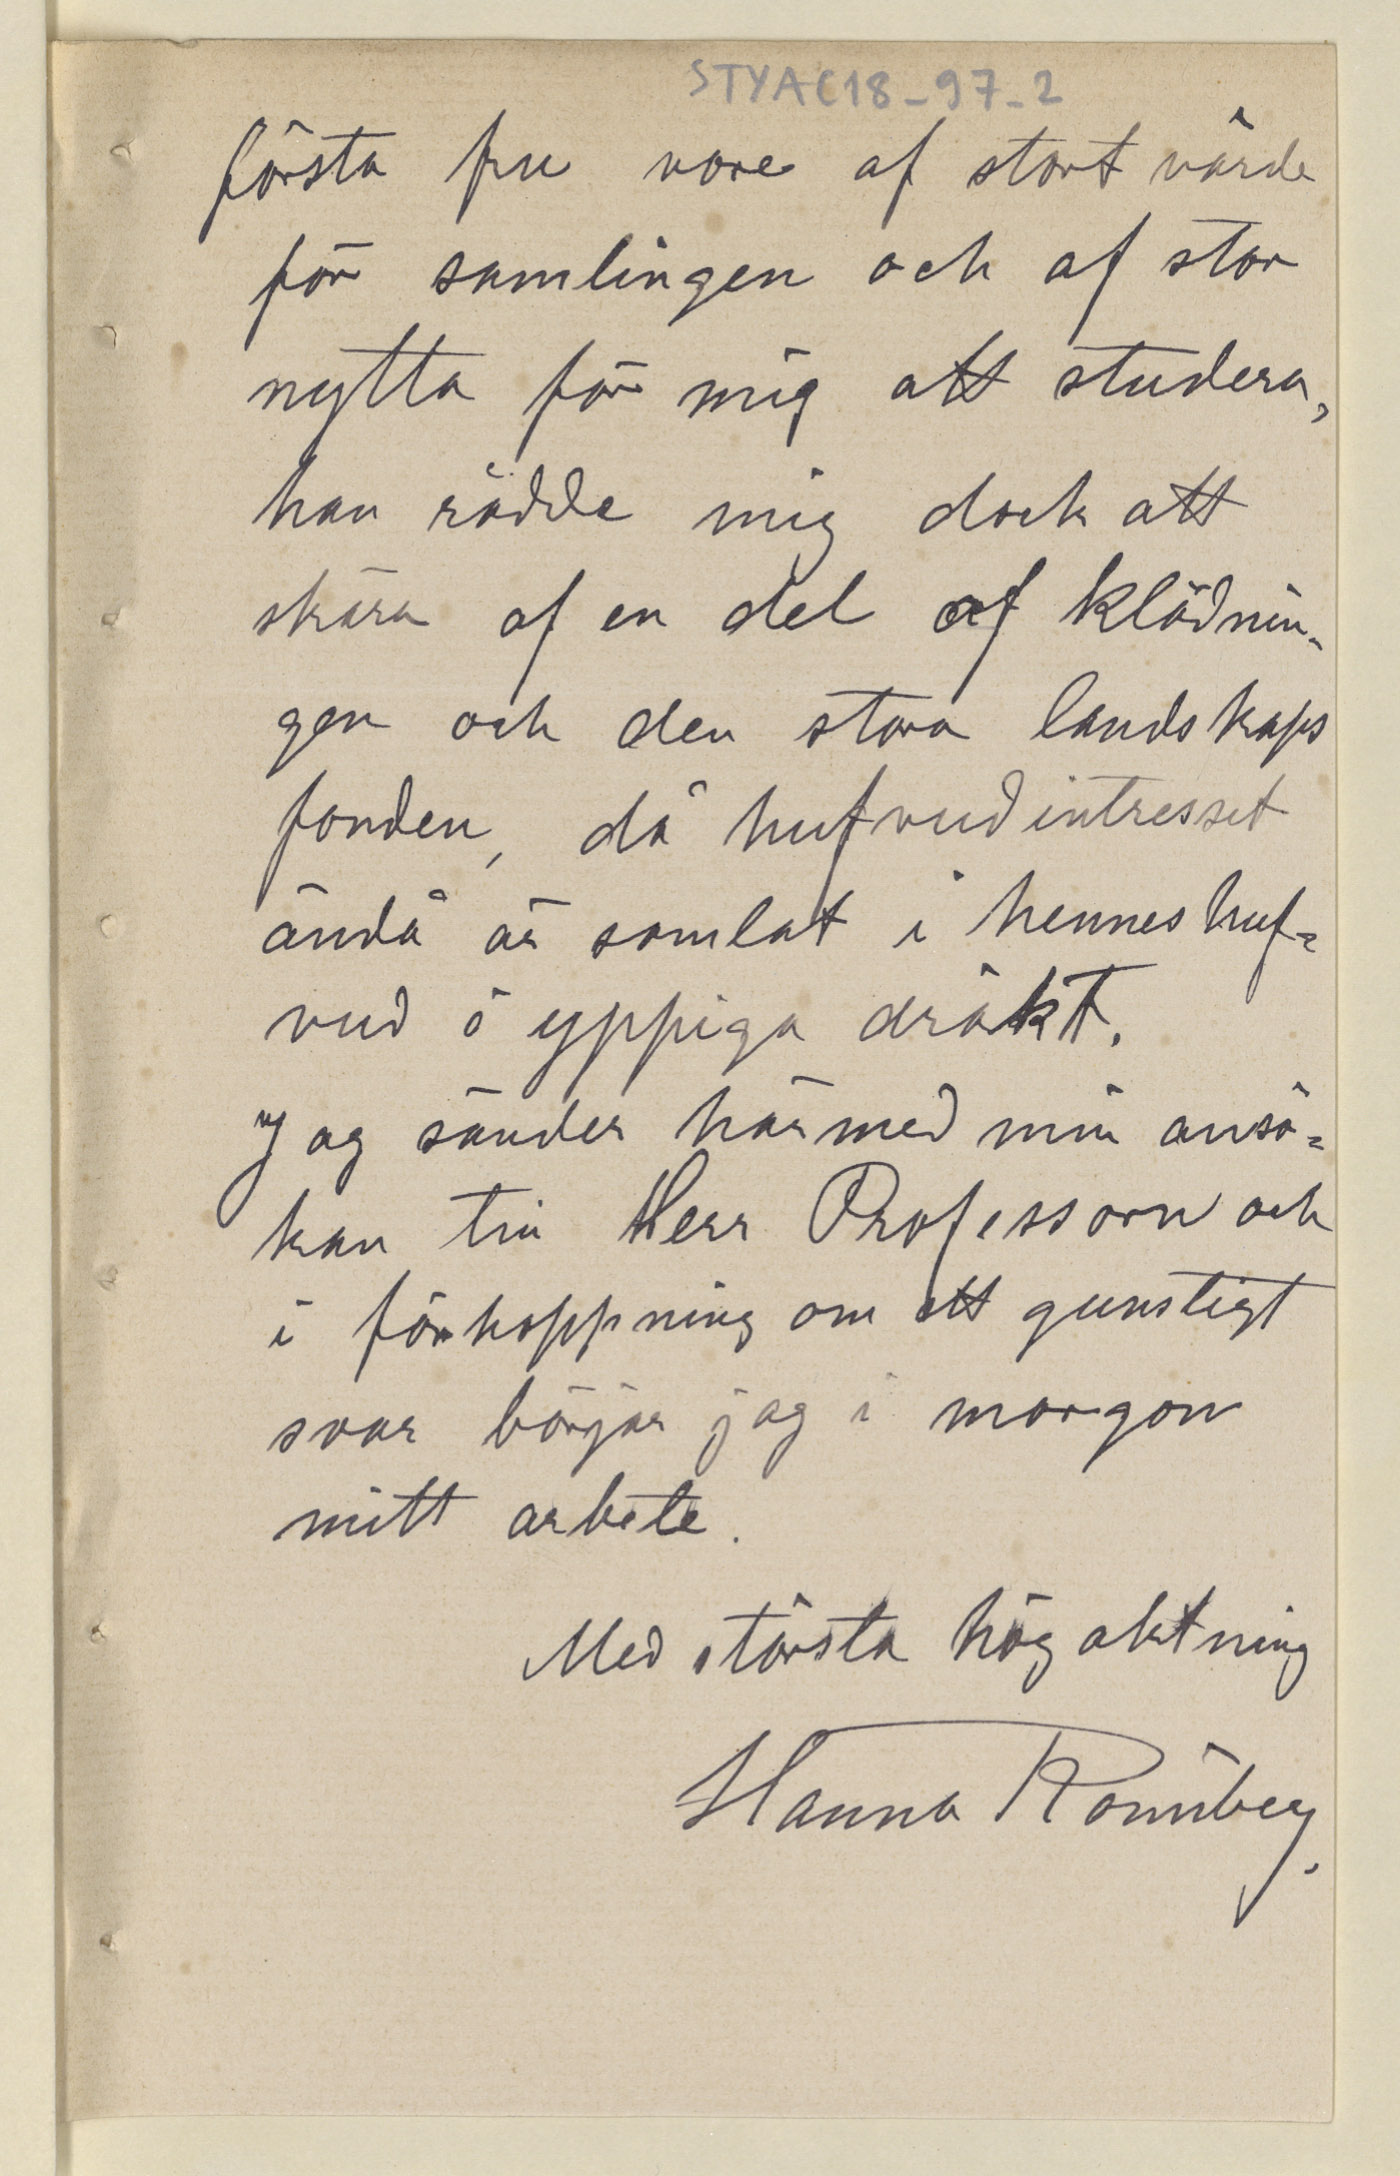 STYAC18-97-2
första fru vore af stort värde
för samlingen och af stor
nytta för mig att studera,
han rådde mig dock att
skära af en del af klädnin-
gen och den stora landskaps
fonden, då hufvudintresset
ändå är samlat i hennes huf=
vud o yppiga dräkt.
Jag sänder härmed min ansö=
kan till Herr Professorn och
i förhoppning om ett gunstigt
svar börjar jag i morgon
mitt arbete.
Med största högaktning
Hanna Rönnberg.